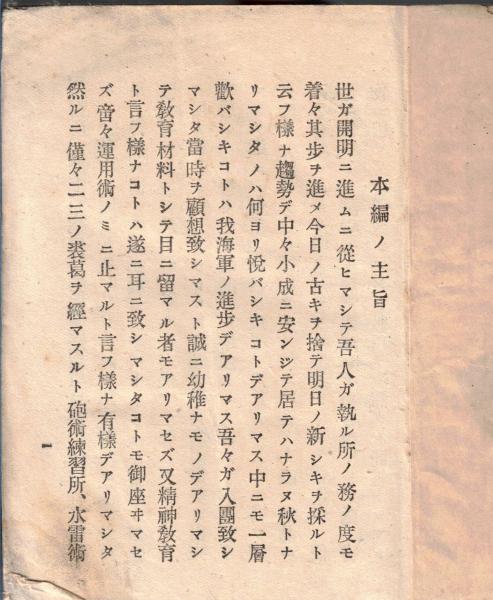 本編ノ主旨
世ガ開明ニ進ムニ從ヒマシテ吾人ガ執ル所ノ務ノ度モ
着々其歩ヲ進メ今日ノ古キヲ捨テ明日ノ新シキヲ採ルト
云フ樣ナ趨勢デ中々小成ニ安ンジテ居テハナラヌ秋トナ
リマシタノハ何ヨリ悅バシキコトデアリマス中ニモ一層
歡バシキコトハ我海軍ノ進歩デアリマス吾々ガ入團致シ
マシタ當時ヲ顧想致シマスト誠ニ幼稚ナモノデアリマシ
テ敎育材料トシテ目ニ留マル者モアリマセズ又精神敎育
ト言フ樣ナコトハ遂ニ耳ニ致シマシタコトモ御座ヰマセ
ズ啻々運用術ノミニ止マルト言フ樣ナ有樣デアリマシタ
然ルニ僅々二三ノ裘葛ヲ經マスルト砲術練習所、水雷術
一